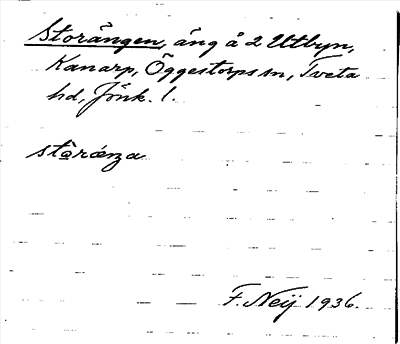 Storängen, äng å 2 Utbyn,
Kanarp, Öggestorps sn, Tveta
hd, Jönk. l.
stōrænza
F. Neij 1936.